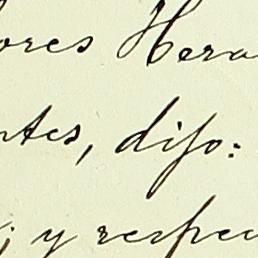 ores Hera
ntes, difo:
; y respec